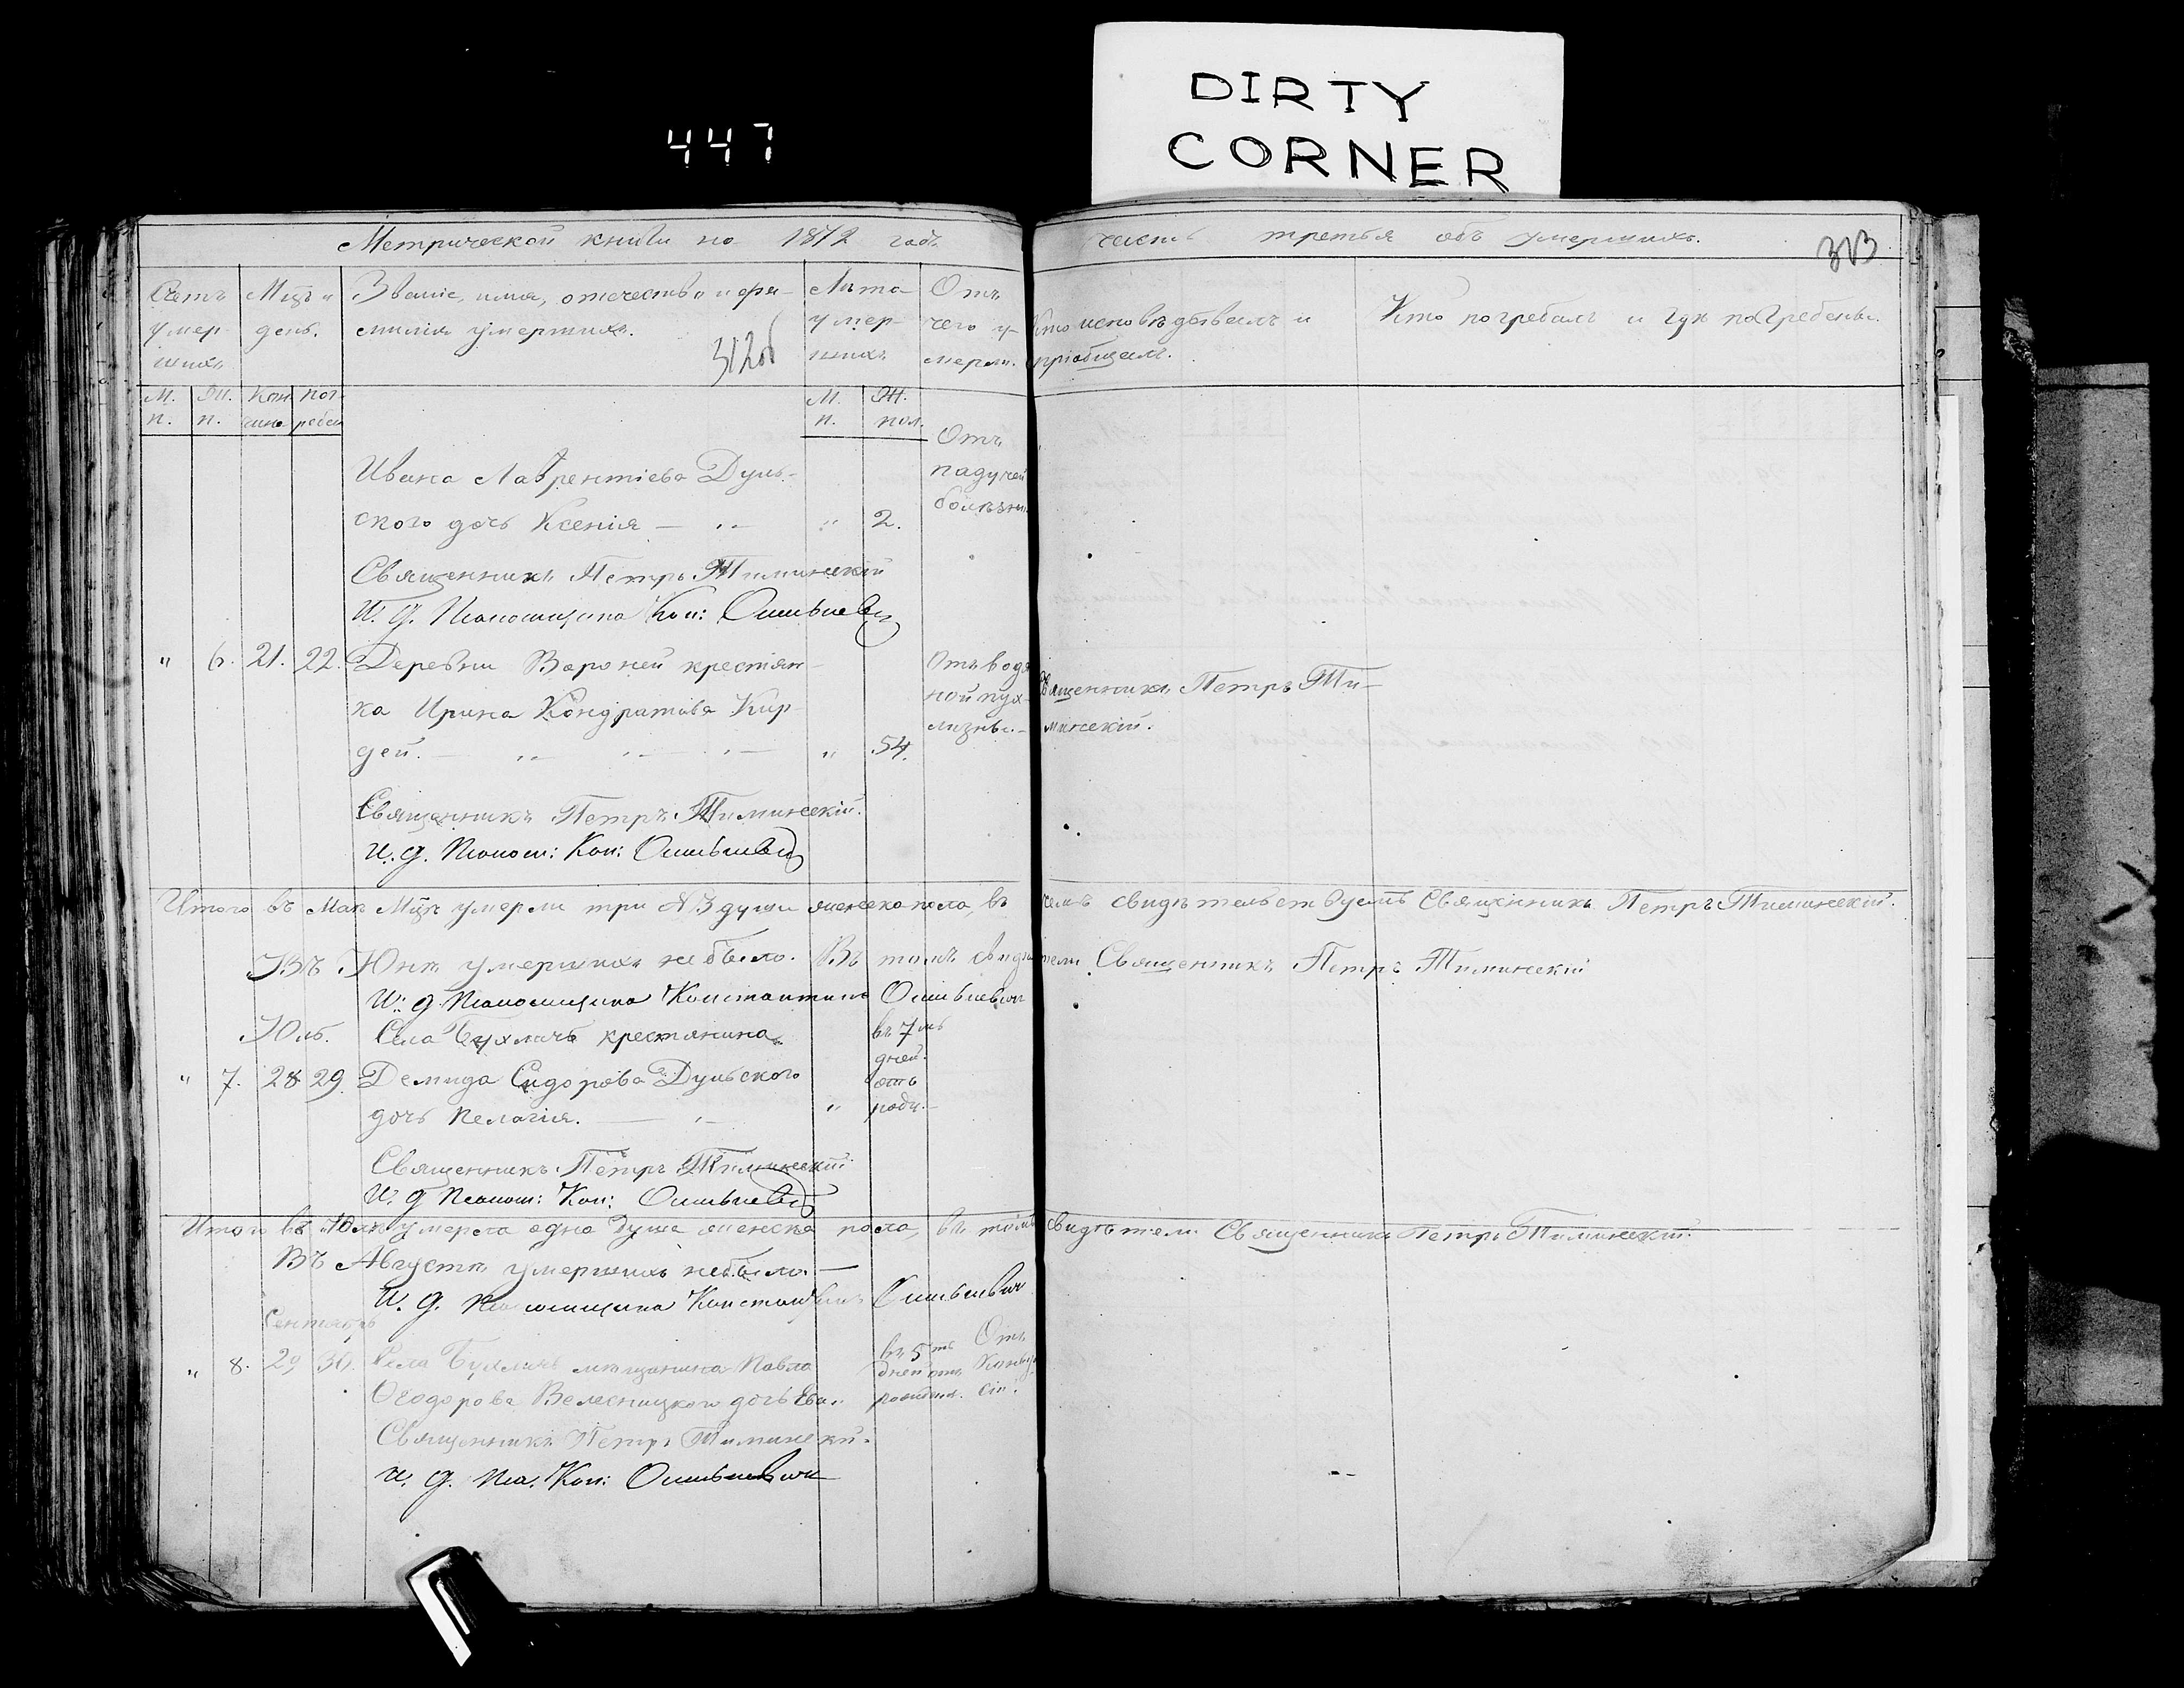 DIRTY
CORNER
447
Метрической книги на 1872 годъ часть третья объ умершихъ.
313
Счетъ умер- шихъ
Мцъ и день.
Званіе, имя, отечество и фа-
милія умершихъ.
312об
Лѣта умер- шихъ
Отъ чего у- мерли.
Кто исповѣдывалъ и
пріобщалъ.
Кто погребалъ и гдѣ погребены.
М. п. Ж. п. Кон чина пог- ребен
М. п. Ж. пол.
Ивана Лаврентіева Дуль-
ского дочь Ксенія — „ 2.
Отъ падучей болѣзни.
Священникъ Петръ Тиминскій
И. д. Псаломщика Кон:
„ 6. 21. 22. Деревни Вороней крестіян-
ка Ирина Кондратова Кир-
дей. — „ 54.
Отъ водя ной пух-
Священникъ Петръ Ти-
минскій.
Священникъ Петръ Тиминскій.
И. д. Псалом: Кон:
Итого въ Маѣ Мцѣ умерли три 3 души женска пола, въ чемъ свидѣтельствуетъ Священникъ Петръ Тиминскій.
Въ Юнѣ умершихъ небыло. Въ томъ свидѣтели Священникъ Петръ Тиминскій
И: д. Псаломщика Константинъ
Юль. Села Бухличъ крестянина
„ 7. 28 29. Демида Сидорова Дульского
дочь Пелагія. — „
въ 7мъ дней. отъ рожд.
Священникъ Петръ Тиминскій
И. д Псалом: Кон:
Итого въ Юлѣ умерла одна душа женска пола, въ томъ свидѣтели Священникъ Петръ Тиминскій.
Въ Августѣ умершихъ небыло. —
И. д. Псаломщика Константинъ
Сентябрь
„ 8. 29 30. Села Бухличъ мѣщанина Павла
Ѳеодорова Велесницкого дочь Ева.
въ 5ть дней отъ рожденія.
Отъ
Священникъ Петръ Тиминскій.
И. д. Пса. Кон: